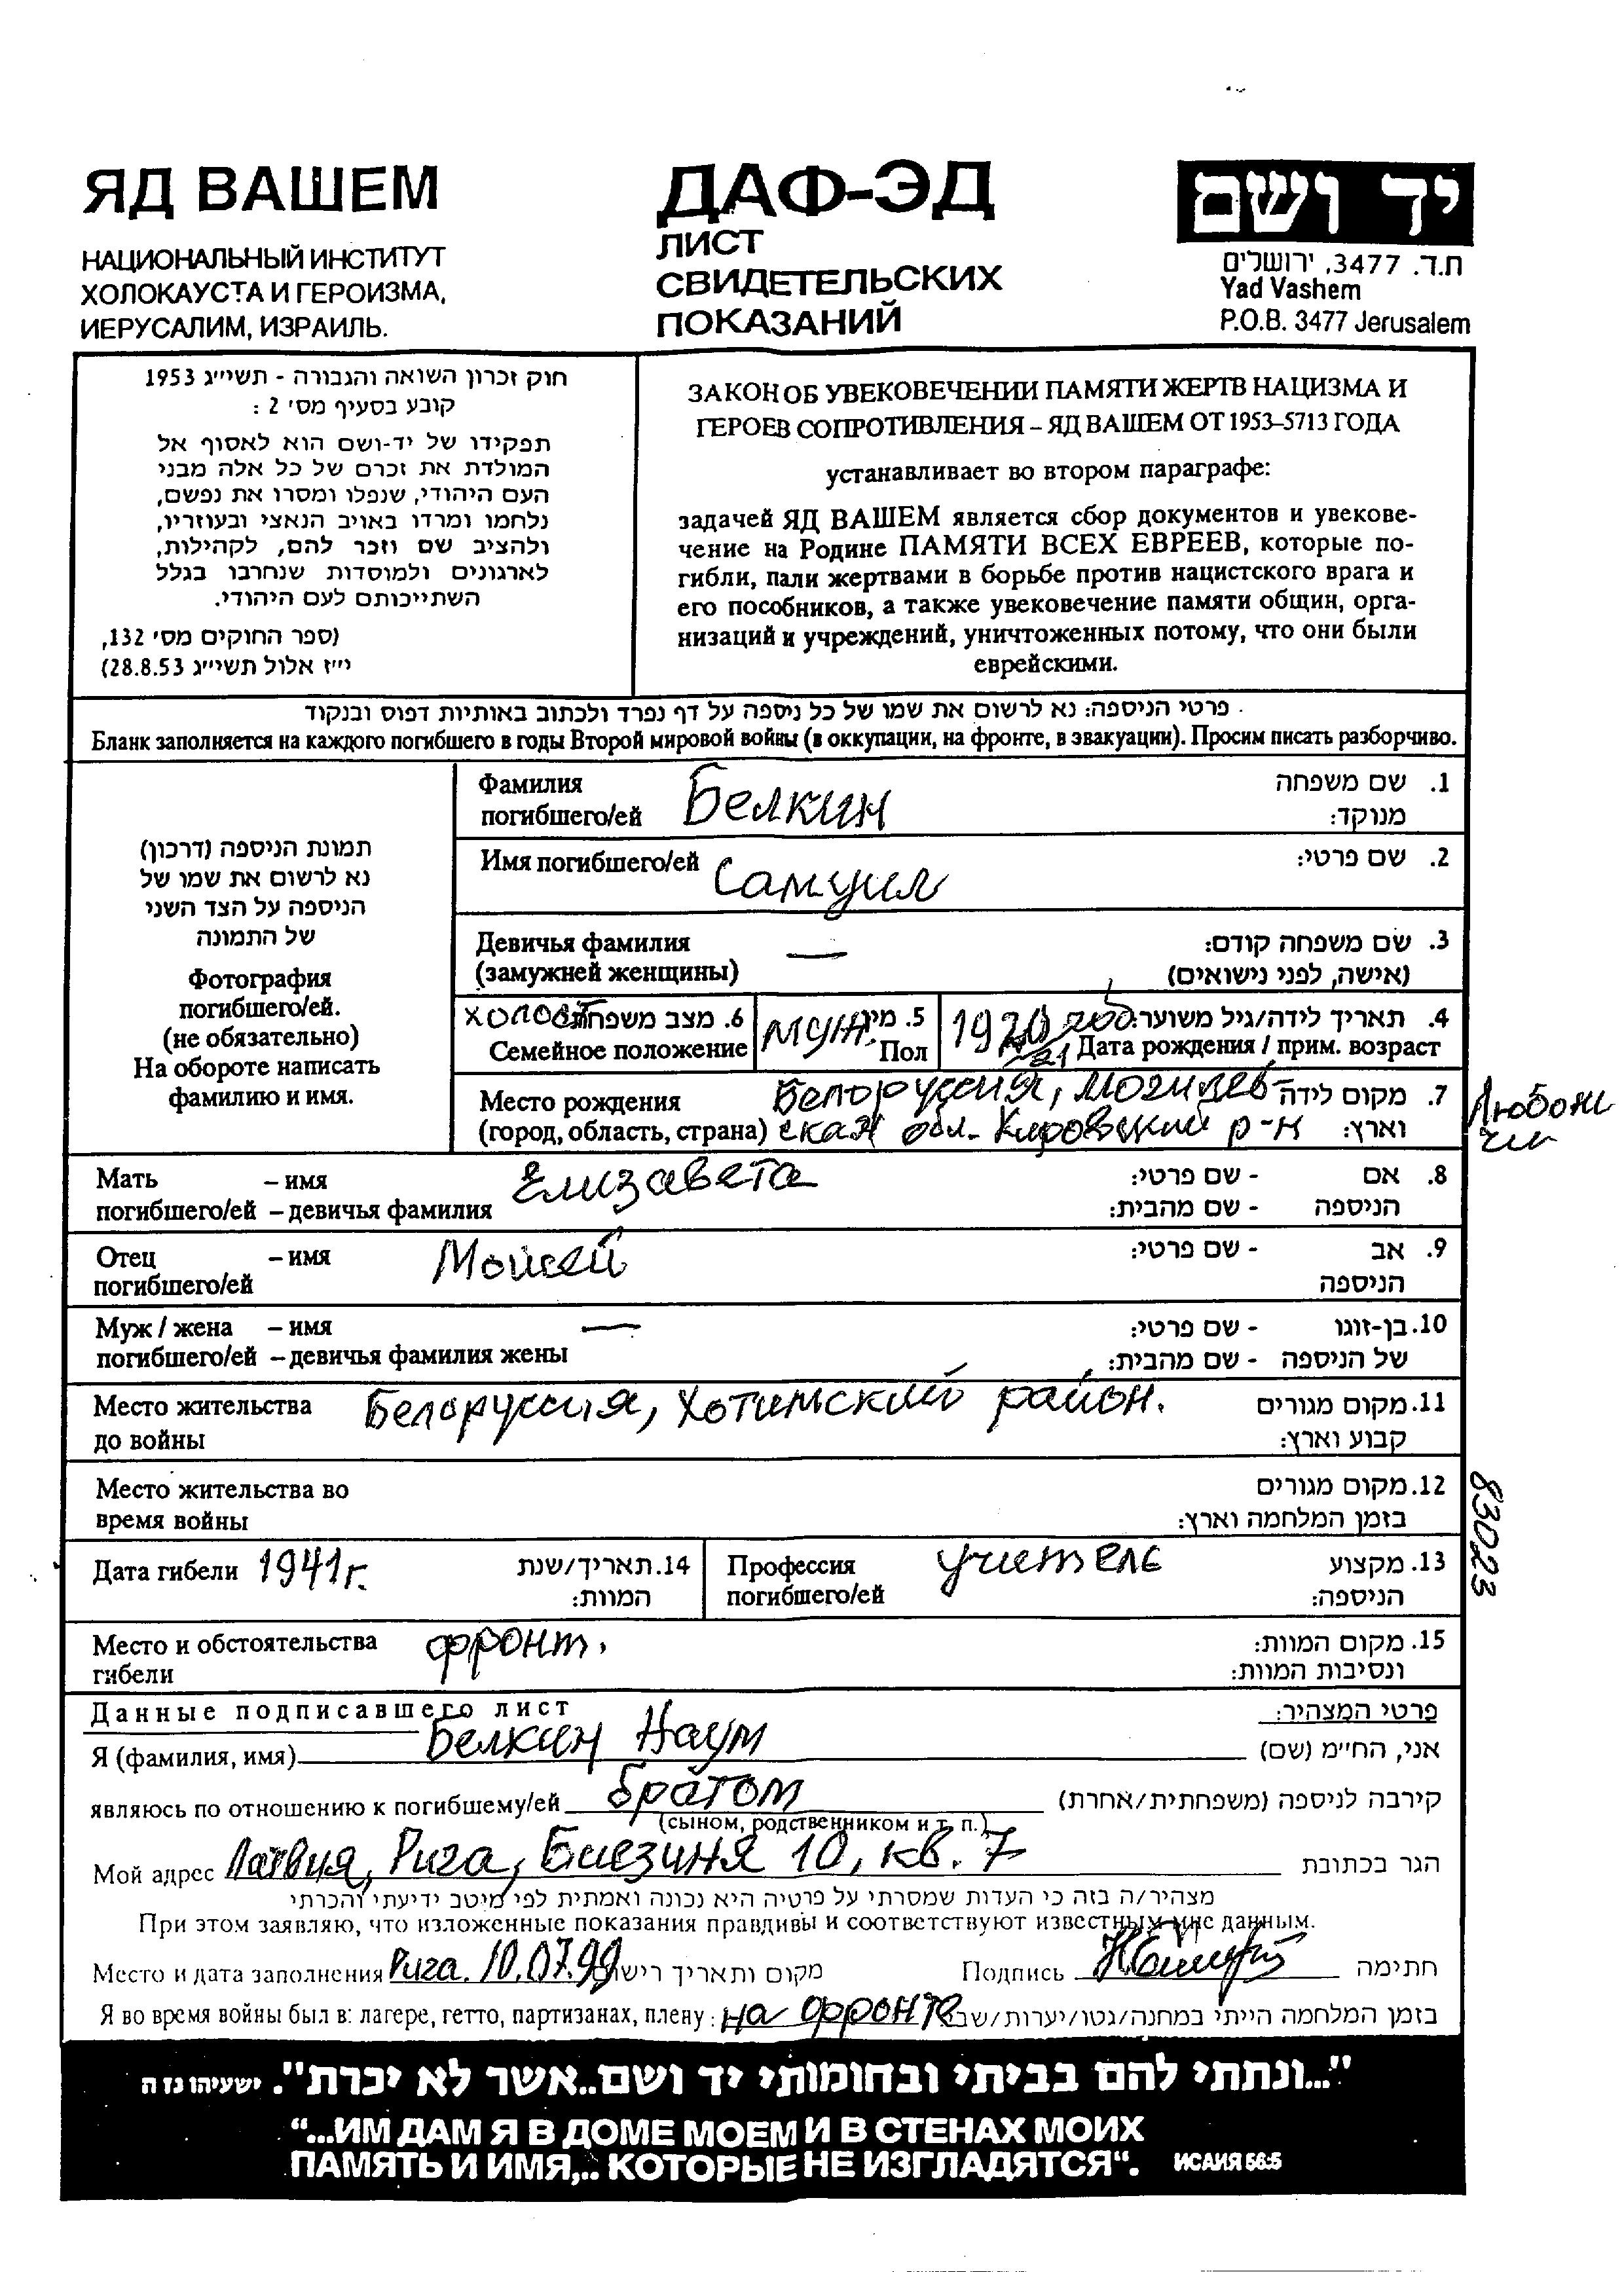 ЯД ВАШЕМ
НАЦИОНАЛЬНЫЙ ИНСТИТУТ
ХОЛОКАУСТА И ГЕРОИЗМА,
ИЕРУСАЛИМ, ИЗРАИЛЬ.
ДАФ-ЭД
ЛИСТ
СВИДЕТЕЛЬСКИХ
ПОКАЗАНИЙ
יד ושם
ת.ד. 3477, ירושלים
Yad Vashem
P.O.B. 3477 Jerusalem
חוק זכרון השואה והגבורה - תשי״ג 1953
קובע בסעיף מס׳ 2 :
תפקידו של יד-ושם הוא לאסוף אל
המולדת את זכרם של כל אלה מבני
העם היהודי, שנפלו ומסרו את נפשם,
נלחמו ומרדו באויב הנאצי ובעוזריו,
ולהציב שם וזכר להם, לקהילות,
לארגונים ולמוסדות שנחרבו בגלל
השתייכותם לעם היהודי.
(ספר החוקים מס׳ 132,
י״ז אלול תשי״ג 28.8.53)
ЗАКОН ОБ УВЕКОВЕЧЕНИИ ПАМЯТИ ЖЕРТВ НАЦИЗМА И
ГЕРОЕВ СОПРОТИВЛЕНИЯ – ЯД ВАШЕМ ОТ 1953–5713 ГОДА
устанавливает во втором параграфе:
задачей ЯД ВАШЕМ является сбор документов и увекове-
чение на Родине ПАМЯТИ ВСЕХ ЕВРЕЕВ, которые по-
гибли, пали жертвами в борьбе против нацистского врага и
его пособников, а также увековечение памяти общин, орга-
низаций и учреждений, уничтоженных потому, что они были
еврейскими.
פרטי הניספה: נא לרשום את שמו של כל ניספה על דף נפרד ולכתוב באותיות דפוס ובנקוד
Бланк заполняется на каждого погибшего в годы Второй мировой войны (в оккупации, на фронте, в эвакуации). Просим писать разборчиво.
תמונת הניספה (דרכון)
נא לרשום את שמו של
הניספה על הצד השני
של התמונה
Фотография
погибшего/ей.
(не обязательно)
На обороте написать
фамилию и имя.
Фамилия
погибшего/ей Белкин
1. שם משפחה
מנוקד:
Имя погибшего/ей Самуил
2. שם פרטי:
Девичья фамилия —
(замужней женщины)
3. שם משפחה קודם:
(אישה, לפני נישואים)
холост 6. מצב משפחתי
Семейное положение
муж. 5. מין
Пол
1920 год 4. תאריך לידה/גיל משוער:
21 Дата рождения / прим. возраст
Место рождения Белоруссия, Могилев-
(город, область, страна) ская обл. Кировский р-н
7. מקום לידה
וארץ:
Любони
чи
Мать – имя Елизавета
погибшего/ей – девичья фамилия
8. אם - שם פרטי:
הניספה - שם מהבית:
Отец – имя Моисей
погибшего/ей
9. אב - שם פרטי:
הניספה
Муж / жена – имя —
погибшего/ей – девичья фамилия жены
10. בן-זוגו - שם פרטי:
של הניספה - שם מהבית:
Место жительства Белоруссия, Хотимский район.
до войны
11. מקום מגורים
קבוע וארץ:
Место жительства во
время войны
12. מקום מגורים
בזמן המלחמה וארץ:
83023
Дата гибели 1941г.
14. תאריך/שנת
המוות:
Профессия учитель
погибшего/ей
13. מקצוע
הניספה:
Место и обстоятельства фронт.
гибели
15. מקום המוות:
ונסיבות המוות:
Данные подписавшего лист
פרטי המצהיר:
Я (фамилия, имя) Белкин Наум אני, החי״מ (שם)
являюсь по отношению к погибшему/ей братом קירבה לניספה (משפחתית/אחרת)
(сыном, родственником и т. п.)
Мой адрес Латвия, Рига, Биезиня 10, кв. 7 הגר בכתובת
מצהיר/ה בזה כי העדות שמסרתי על פרטיה היא נכונה ואמתית לפי מיטב ידיעתי והכרתי
При этом заявляю, что изложенные показания правдивы и соответствуют известным мне данным.
Место и дата заполнения Рига. 10.07.99 מקום ותאריך רישום Подпись חתימה
Я во время войны был в: лагере, гетто, партизанах, плену: на фронте בזמן המלחמה הייתי במחנה/גטו/יערות/שבי
"...ונתתי להם בביתי ובחומותי יד ושם..אשר לא יכרת". ישעיהו נו ה
"...ИМ ДАМ Я В ДОМЕ МОЕМ И В СТЕНАХ МОИХ
ПАМЯТЬ И ИМЯ,.. КОТОРЫЕ НЕ ИЗГЛАДЯТСЯ". ИСАИЯ 56:5